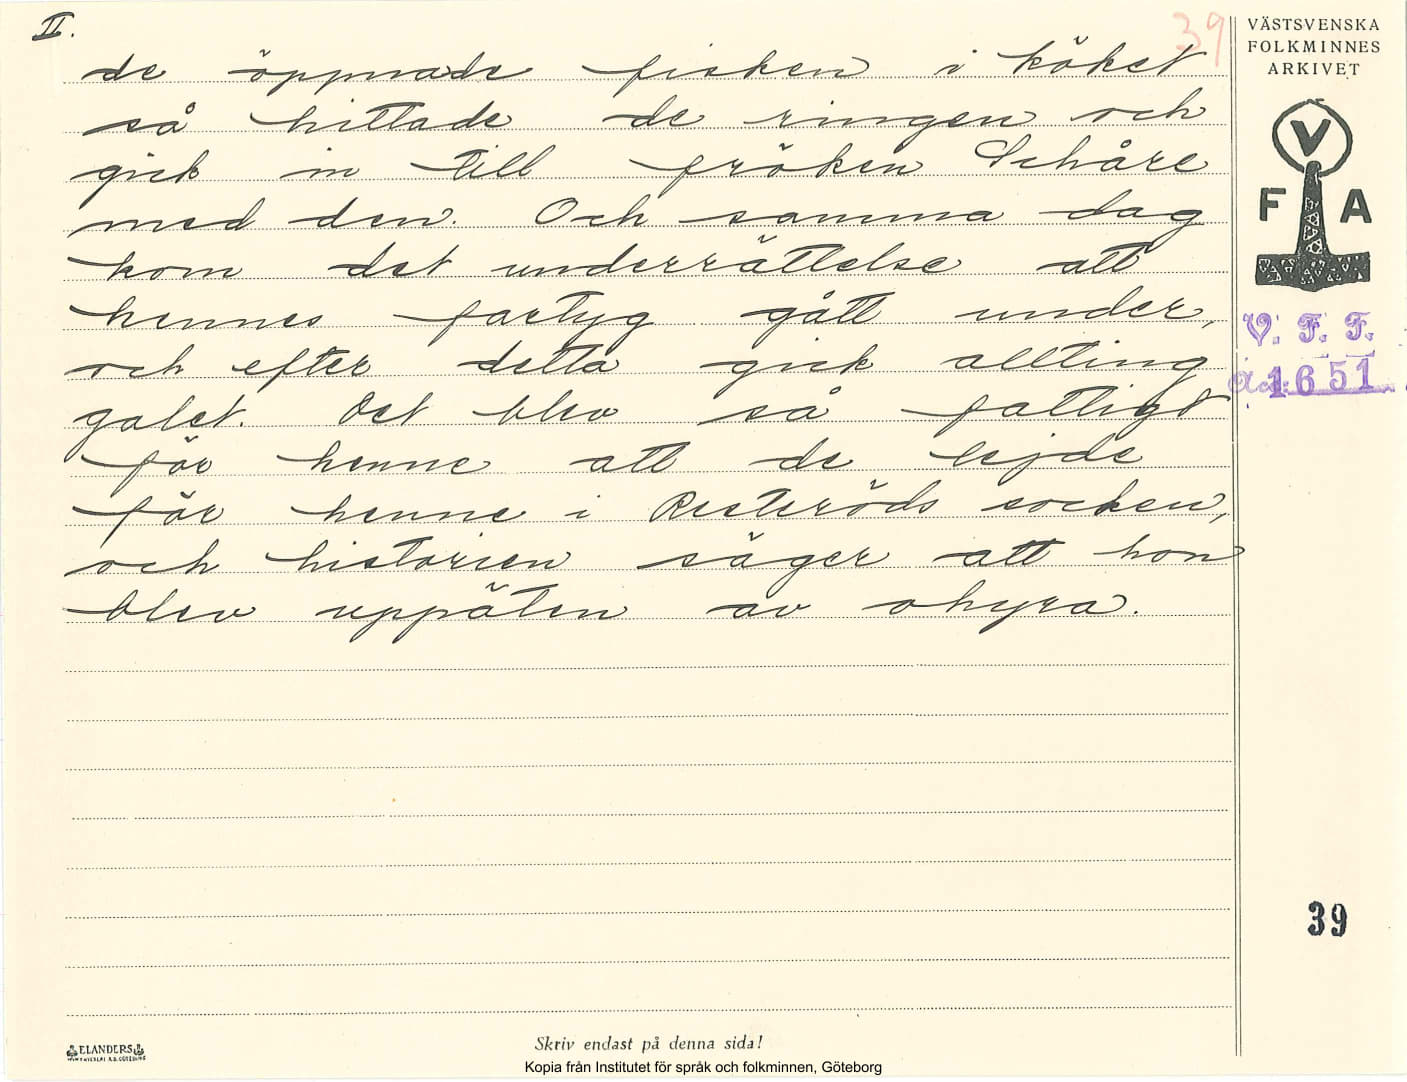 II.
39
de öppnade fisken i köket
så hittade de ringen och
gick in till fröken Schåre
med den. Och samma dag
kom det underrättelse att
hennes fartyg gått under,
och efter detta gick allting
galet. Det blev så fattigt
för henne att de lejde
för henne i Resteröds socken,
och historien säger att hon
blev uppäten av ohyra.
VÄSTSVENSKA
FOLKMINNES
ARKIVET
V
F A
V. F. F.
1651
39
ELANDERS
Skriv endast på denna sida!
Kopia från Institutet för språk och folkminnen, Göteborg